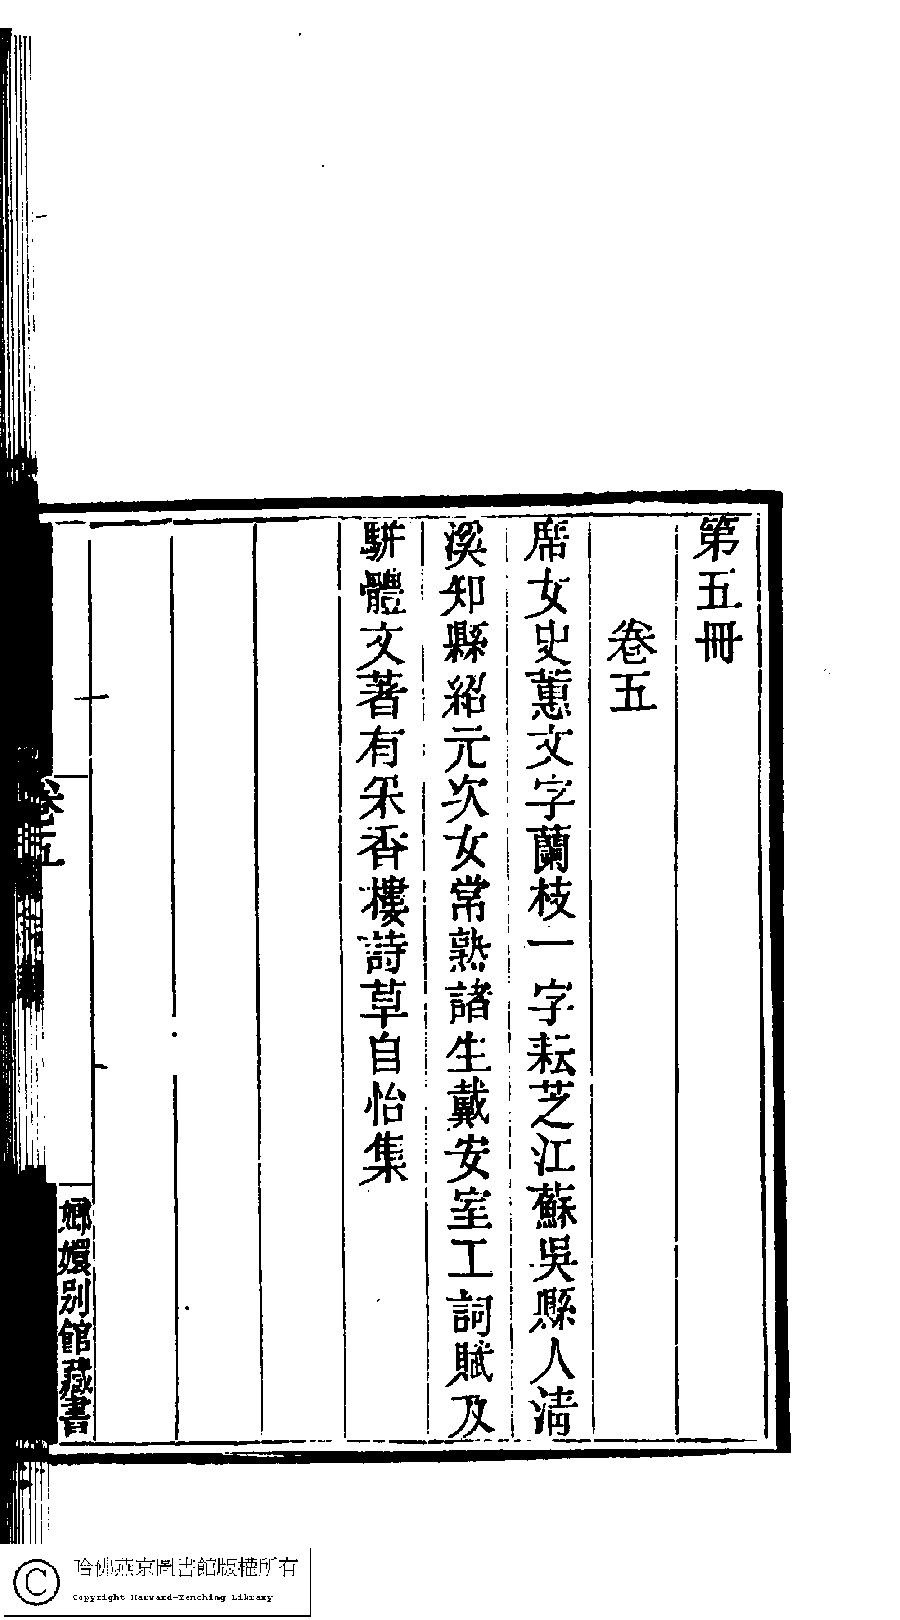 第五冊
卷五
席女史蕙文字蘭枝一字耘芝江蘇吳縣人清
溪知縣紹元次女常熟諸生戴安室工詞賦及
駢體文著有采香樓詩草自怡集
卷五
嫏嬛別館藏書
哈佛燕京圖書館版權所有
Copyright Harvard-Yenching Library